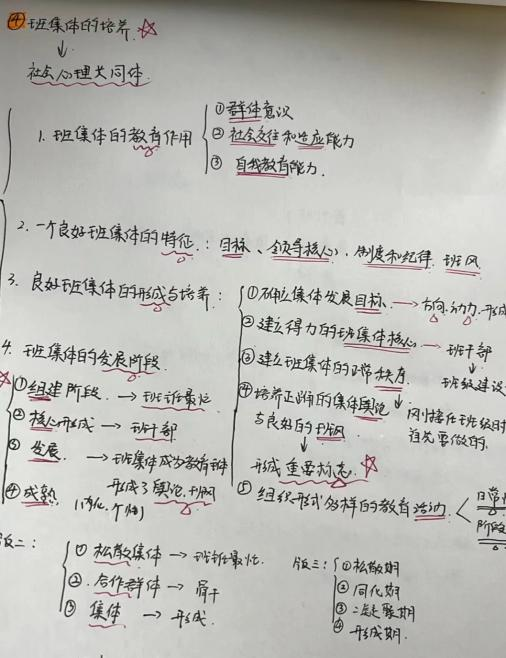 ④ 班集体的培养. ☆
↓
社会心理共同体.
1. 班集体的教育作用
① 群体意识
② 社会交往和适应能力
③ 自我教育能力.
2. 一个良好班集体的特征: 目标、领导核心、制度和纪律、班风
3. 良好班集体的形成与培养:
① 确立集体发展目标. → 方向.动力.形成
② 建立得力的班集体核心 → 班干部
③ 建立班集体的正常秩序. 班级建设
刚接任班级时首先要做的.
④ 培养正确的集体舆论
与良好的班风
↓
形成重要标志. ☆
⑤ 组织形式多样的教育活动 < 日常
阶段
4. 班集体的发展阶段.
☆ ① 组建阶段. → 班主任最忙
② 核心形成 → 班干部
③ 发展. → 班集体成为教育
形成了舆论.班风
④ 成熟. (个)
版二:
① 松散集体 → 班主任最忙.
② 合作群体 → 骨干
③ 集体 → 形成.
版三: ① 松散期
② 同化期
③ 凝聚期
④ 形成期.